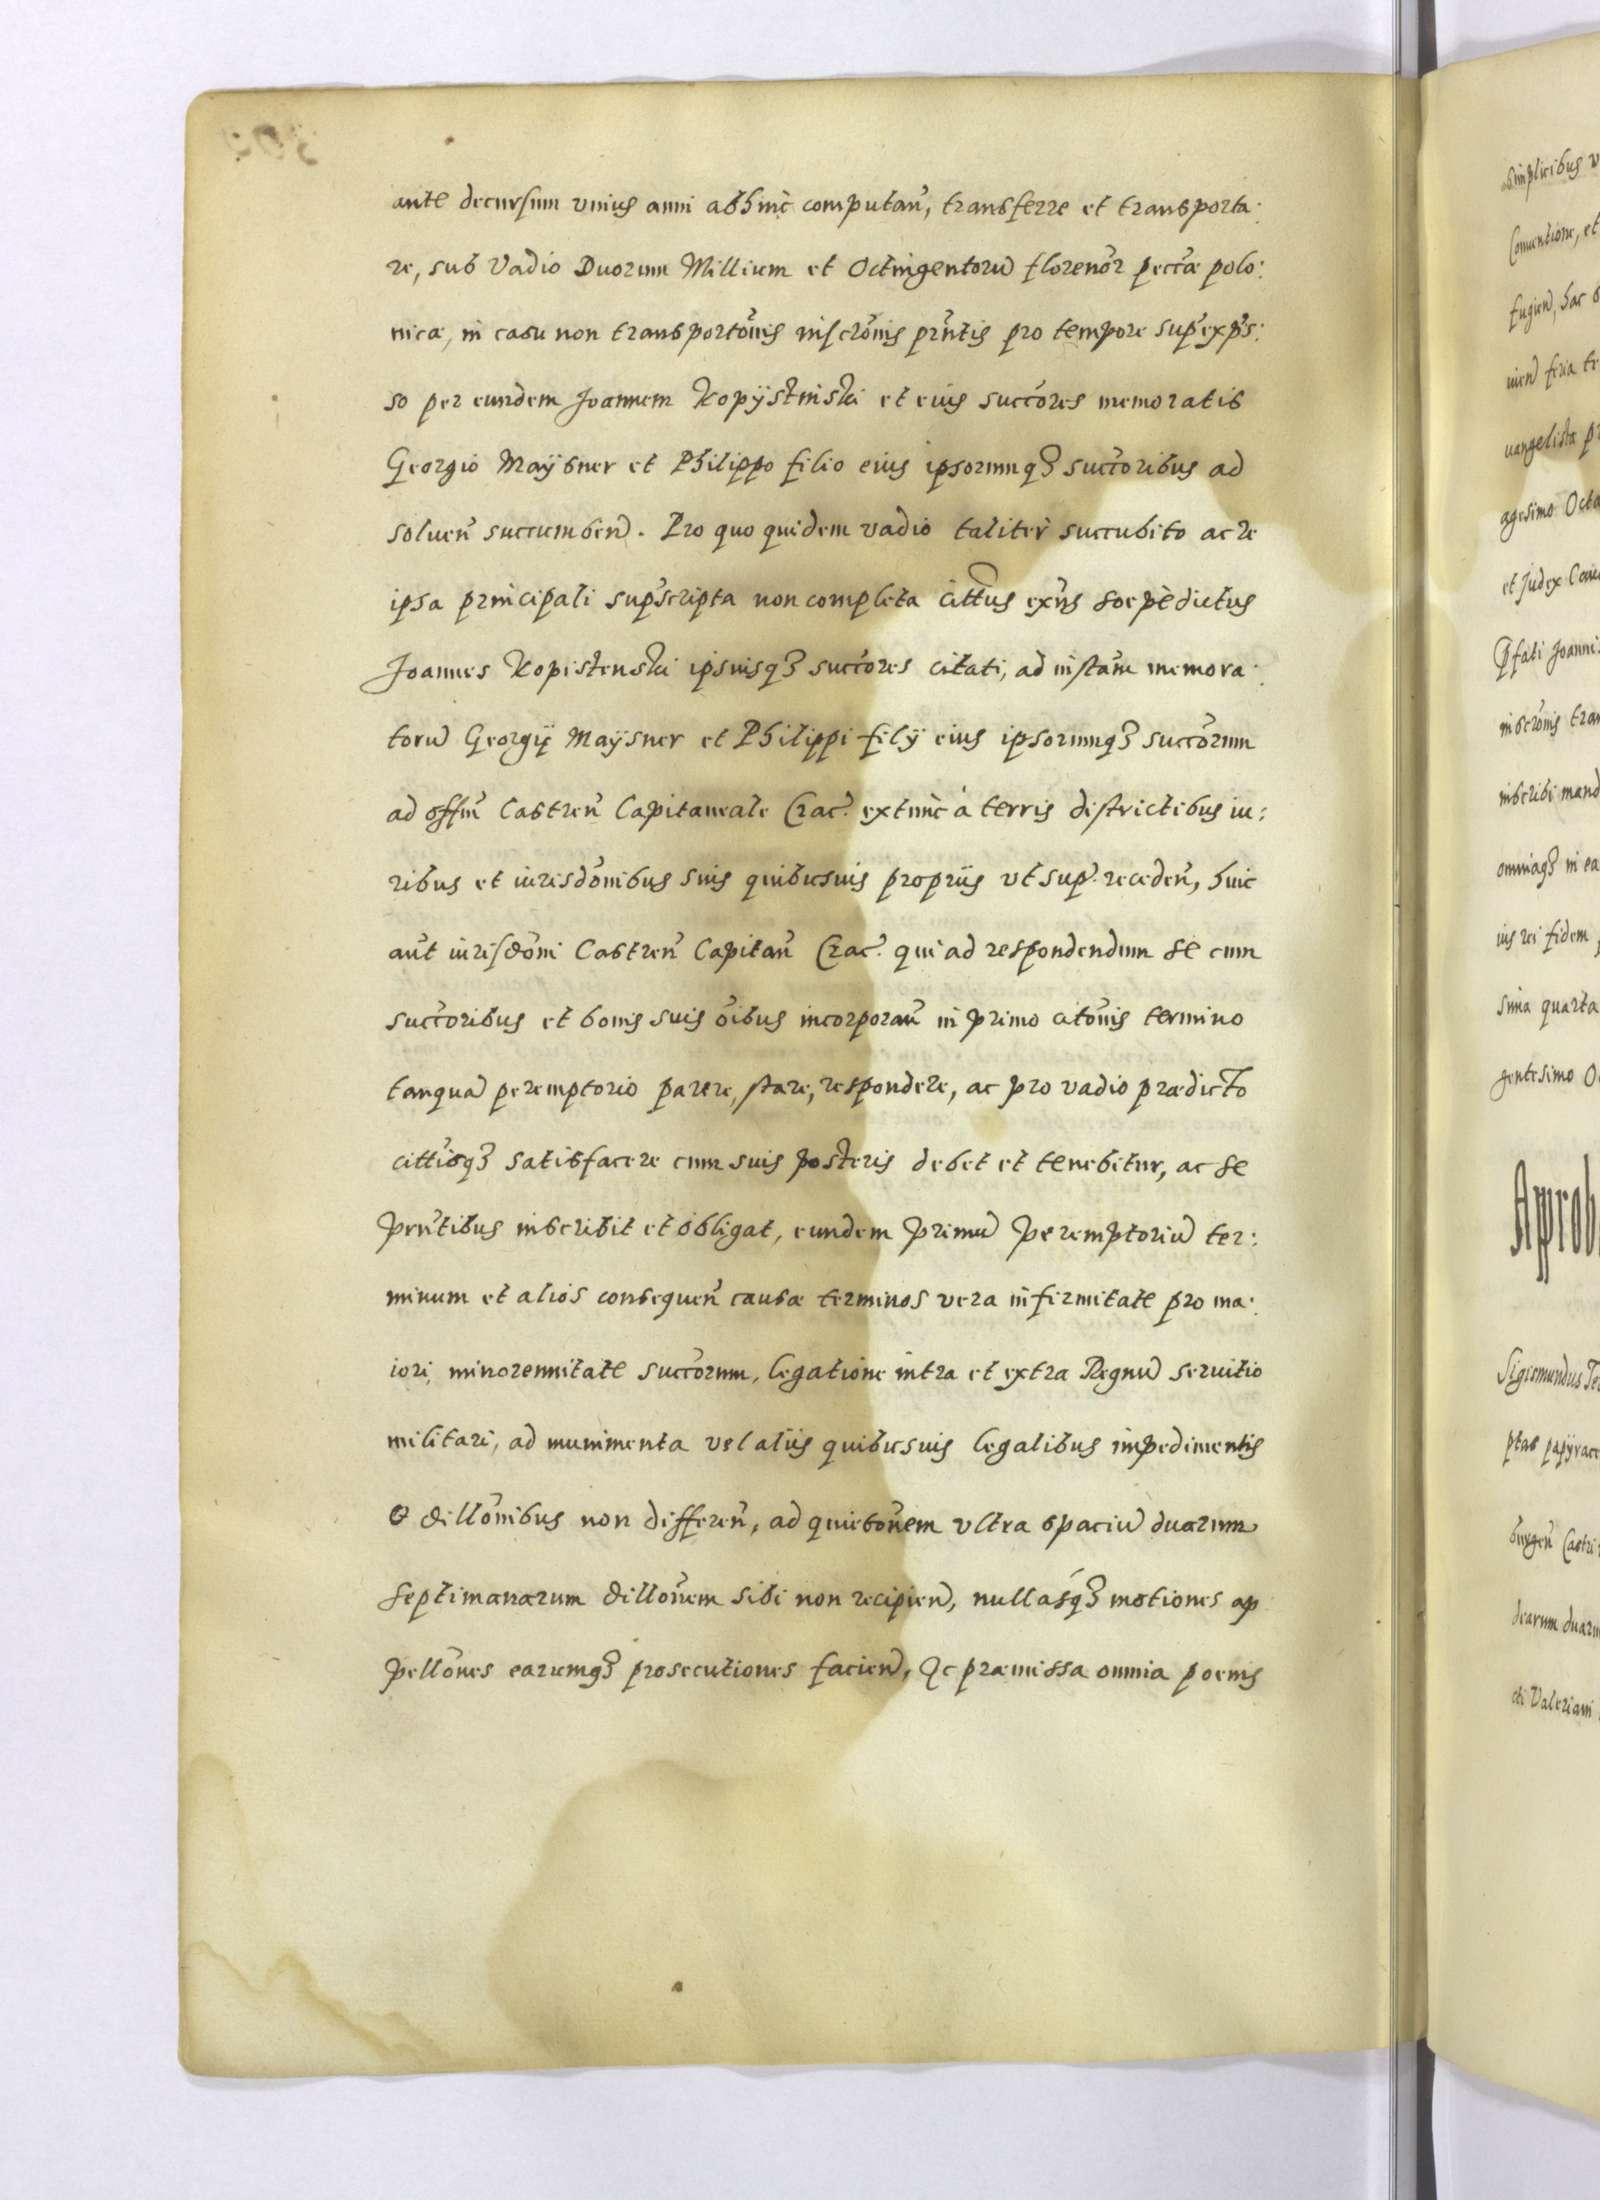 ante decursum unius anni abhinc computan̄, transferre et transporta:
re, sub Vadio Duorum Millium et Octingentorū florenōr pecc̄æ polo:
nicæ, in casu non transportōnis inscrōnis prn̄tis pro tempore sup̄exp̄s:
so per eundem Joannem Kopijstinski et eius succōres memoratis
Georgio Maÿsner et Philippo filio eius ipsorumqʒ succōribus ad
soluen̄ succumben̄. Pro quo quidem vadio taliter succubito ac re
ipsa principali sup̄scripta non completa citt̄us exn̄s soepèdictus
Joannes Kopistenski ipsuisqʒ succōres citati, ad instan̄m memora:
torū Georgÿ Maÿsner et Philippi filÿ eius ipsorumqʒ succōrum
ad off̄m Castren̄ Capitaneale Crac̄. extunc à terris districtibus iu:
ribus et iurisdōnibus suis quibusuis proprijs vt sup̄. receden̄, huic
aūt iurisdōni Castren̄ Capitan̄ Crac̄. qui ad respondendum se cum
succōribus et bonis suis ōibus incorporan̄ in primo citōnis termino
tanquā peremptorio parere, stare, respondere, ac pro vadio prædicto
citt̄isqʒ satisfacere cum suis posteris debet et tenebitur, ac se
prn̄tibus inscribit et obligat, eundem primū peremptoriū ter:
minum et alios consequen̄ causæ terminos vera infirmitate pro ma:
iori, minorennitate succōrum, legatione intra et extra Regnū seruitio
militari, ad munimenta vel alijs quibusuis legalibus impedimentis
& dillōnibus non differen̄, ad quietōnem vltra spaciū duarum
septimanarum dillōnem sibi non recipien̄, nullásqʒ motiones ap
pellōnes earumqʒ prosecutiones facien̄, Ac præmissa omnia poenis
Conuentione, et
fugien̄, hac
uien̄ feria
uangelistæ
agesimo Octa
et Judex
Pfati Joannis
inscrōnis tran
inscribi mand
omniaqʒ in ea
ius rei fidem
sima quarta
gentesimo
Approb
Sigismundus
ptas papÿrace
burgen̄ Castri
dearum duarū
cti Valeriani